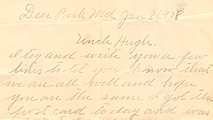 Deer Park Md Jan 8 1938
Uncle Hugh.
I try and write you a few
lines to let you know that
we are all well and hope
you are the same I got the
post card to day and was